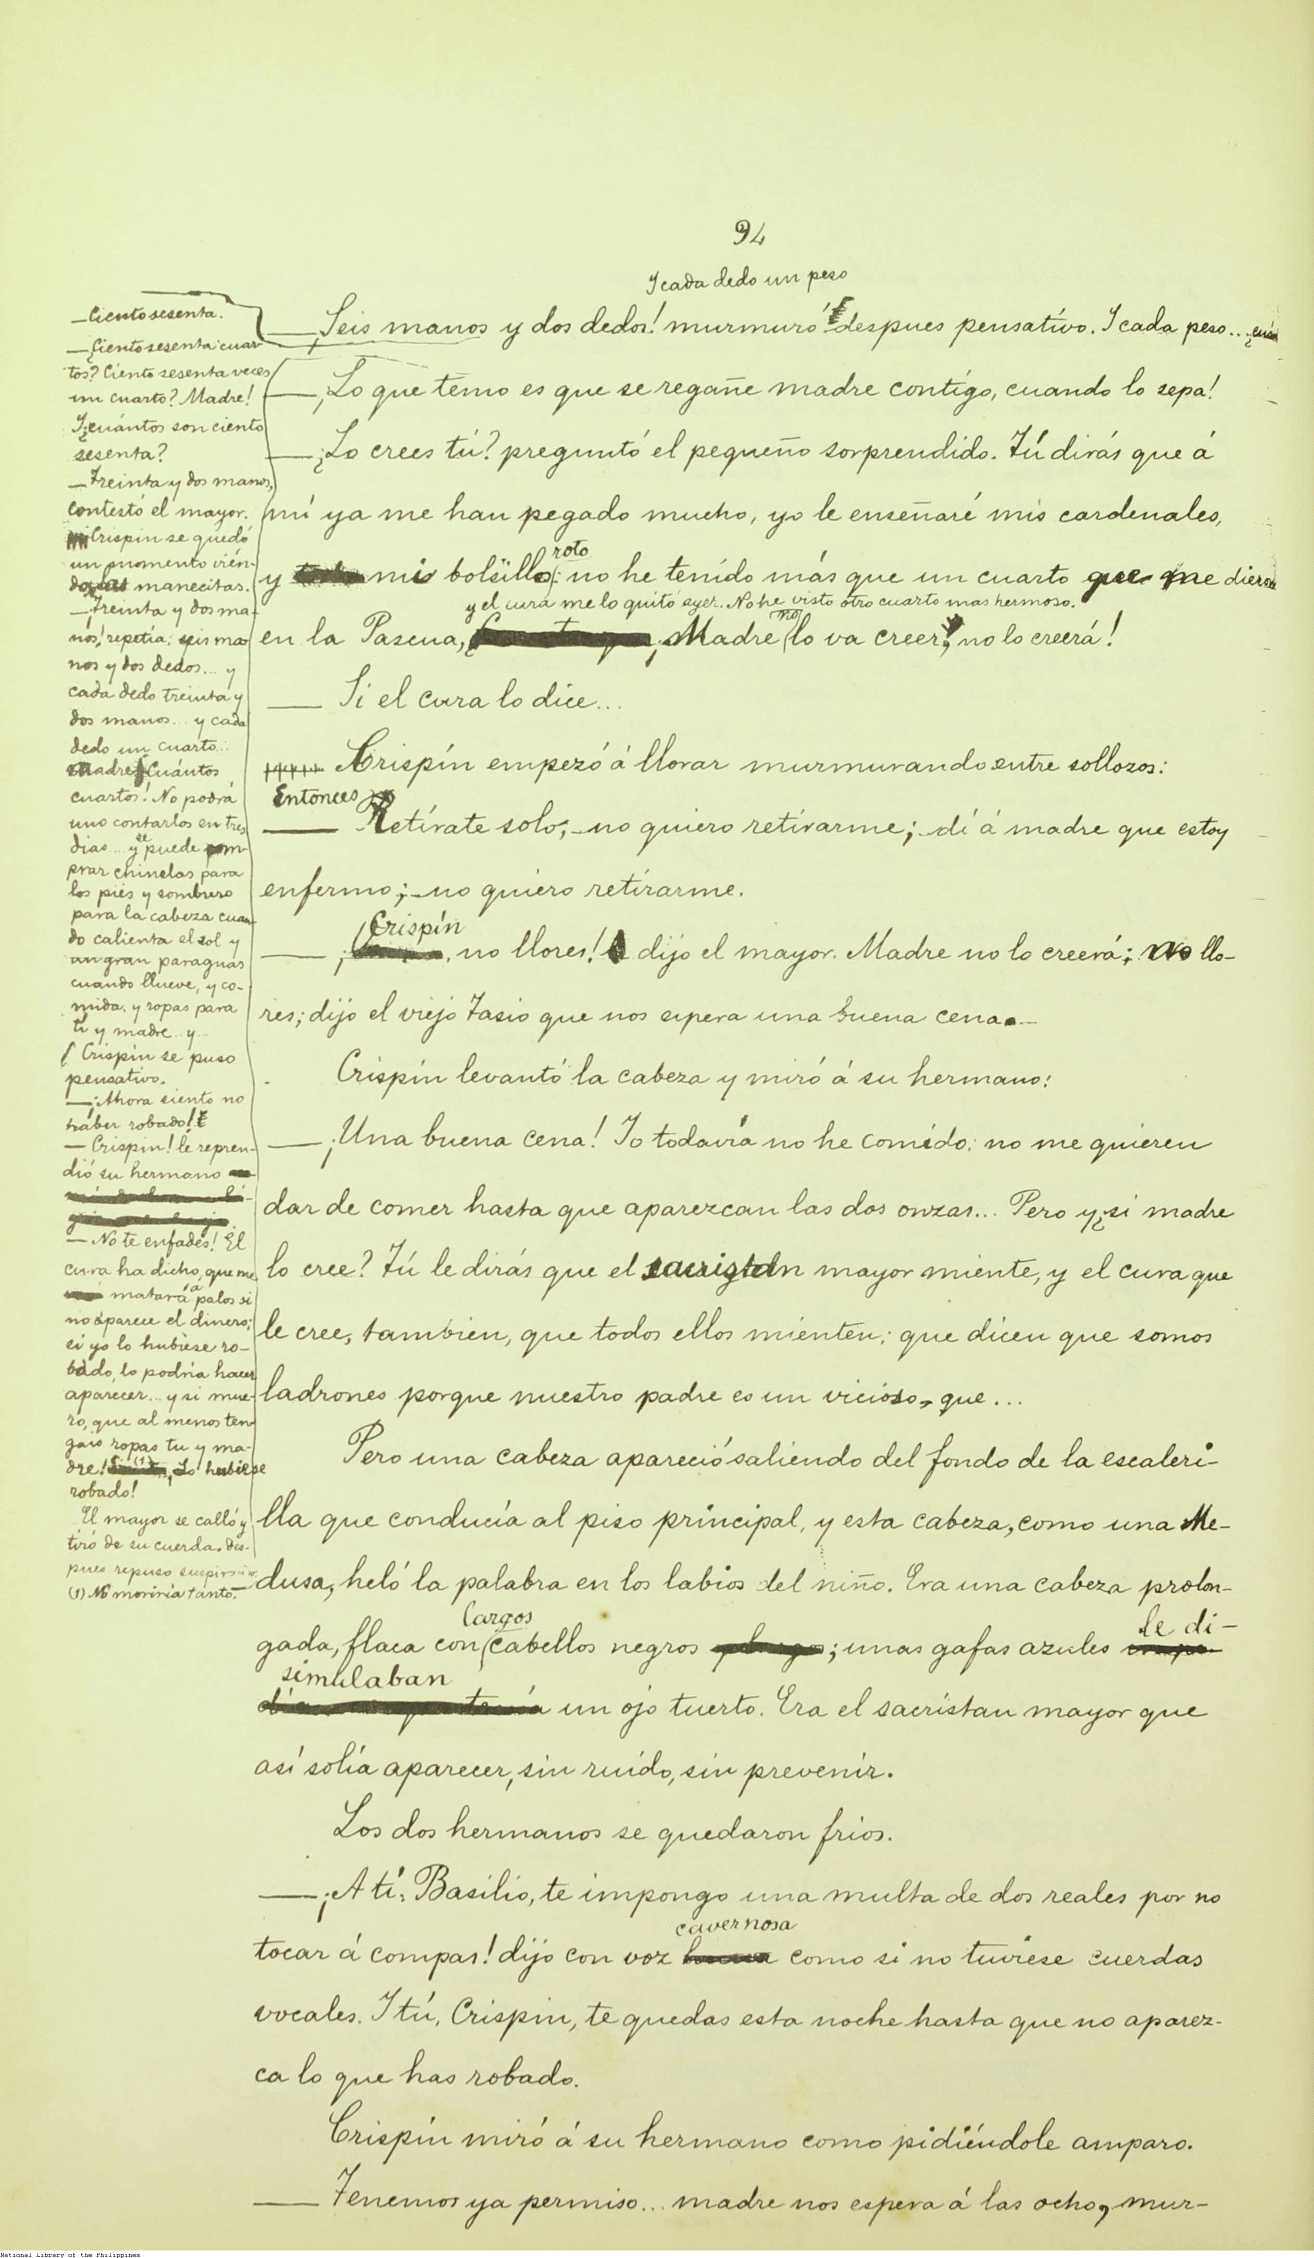 94
Y cada dedo un peso
— ¡Seis manos y dos dedos! murmuró despues pensativo. Y cada peso... ¿cuán
— ¡Lo que temo es que se regañe madre contigo, cuando lo sepa!
— ¿Lo crees tú? preguntó el pequeño sorprendido. Tú dirás que á
mí ya me han pegado mucho, yo le enseñaré mis cardenales,
roto
y mi bolsillo: no he tenido más que un cuarto que me dieron
y el cura me lo quitó ayer. No he visto otro cuarto mas hermoso.
no
en la Pascua, Madre lo va creer, no lo creerá!
— Si el cura lo dice...
Crispín empezó á llorar murmurando entre sollozos:
Entonces
— Retírate solo, no quiero retirarme; di á madre que estoy
enfermo; no quiero retirarme.
Crispín
— ¡ no llores! dijo el mayor. Madre no lo creerá; no llo-
res; dijo el viejo Tasio que nos espera una buena cena.
Crispín levantó la cabeza y miró á su hermano:
— ¡Una buena cena! Yo todavía no he comido: no me quieren
dar de comer hasta que aparezcan las dos onzas... Pero y ¿si madre
lo cree? Tú le dirás que el sacristan mayor miente, y el cura que
le cree, tambien, que todos ellos mienten; que dicen que somos
ladrones porque nuestro padre es un vicioso, que...
Pero una cabeza apareció saliendo del fondo de la escaleri-
lla que conducía al piso principal, y esta cabeza, como una Me-
dusa, heló la palabra en los labios del niño. Era una cabeza prolon-
largos
gada, flaca con cabellos negros; unas gafas azules
le di-
simulaban
un ojo tuerto. Era el sacristan mayor que
así solía aparecer, sin ruido, sin prevenir.
Los dos hermanos se quedaron frios.
— ¡A tí, Basilio, te impongo una multa de dos reales por no
cavernosa
tocar á compas! dijo con voz como si no tuviese cuerdas
vocales. Y tú, Crispin, te quedas esta noche hasta que no aparez-
ca lo que has robado.
Crispín miró á su hermano como pidiéndole amparo.
— Tenemos ya permiso... madre nos espera á las ocho, mur-
— Ciento sesenta.
— ¿Ciento sesenta cuar-
tos? Ciento sesenta veces
un cuarto? Madre!
Y ¿cuántos son ciento
sesenta?
— Treinta y dos manos,
contestó el mayor.
Crispín se quedó
un momento vién-
dose las manecitas.
— ¡Treinta y dos ma-
nos! repetía: seis ma-
nos y dos dedos... y
cada dedo treinta y
dos manos... y cada
dedo un cuarto...
Madre ¡Cuántos
cuartos! No podrá
uno contarlos en tres
se
dias... y puede com-
prar chinelas para
los piés y sombrero
para la cabeza cuan-
do calienta el sol y
un gran paraguas
cuando llueve, y co-
mida, y ropas para
ti y madre y
Crispín se puso
pensativo.
— ¡Ahora siento no
haber robado!
— Crispin! le repren-
dió su hermano
— No te enfades! El
cura ha dicho, que me
matará á palos si
no aparece el dinero;
si yo lo hubiese ro-
bado, lo podría hacer
aparecer... y si mue-
ro, que al menos ten-
gais ropas tu y ma-
dre! (1) Lo hubiese
robado!
El mayor se calló y
tiró de su cuerda. des-
pues repuso suspirando
(1) No moriría tanto.
National Library of the Philippines